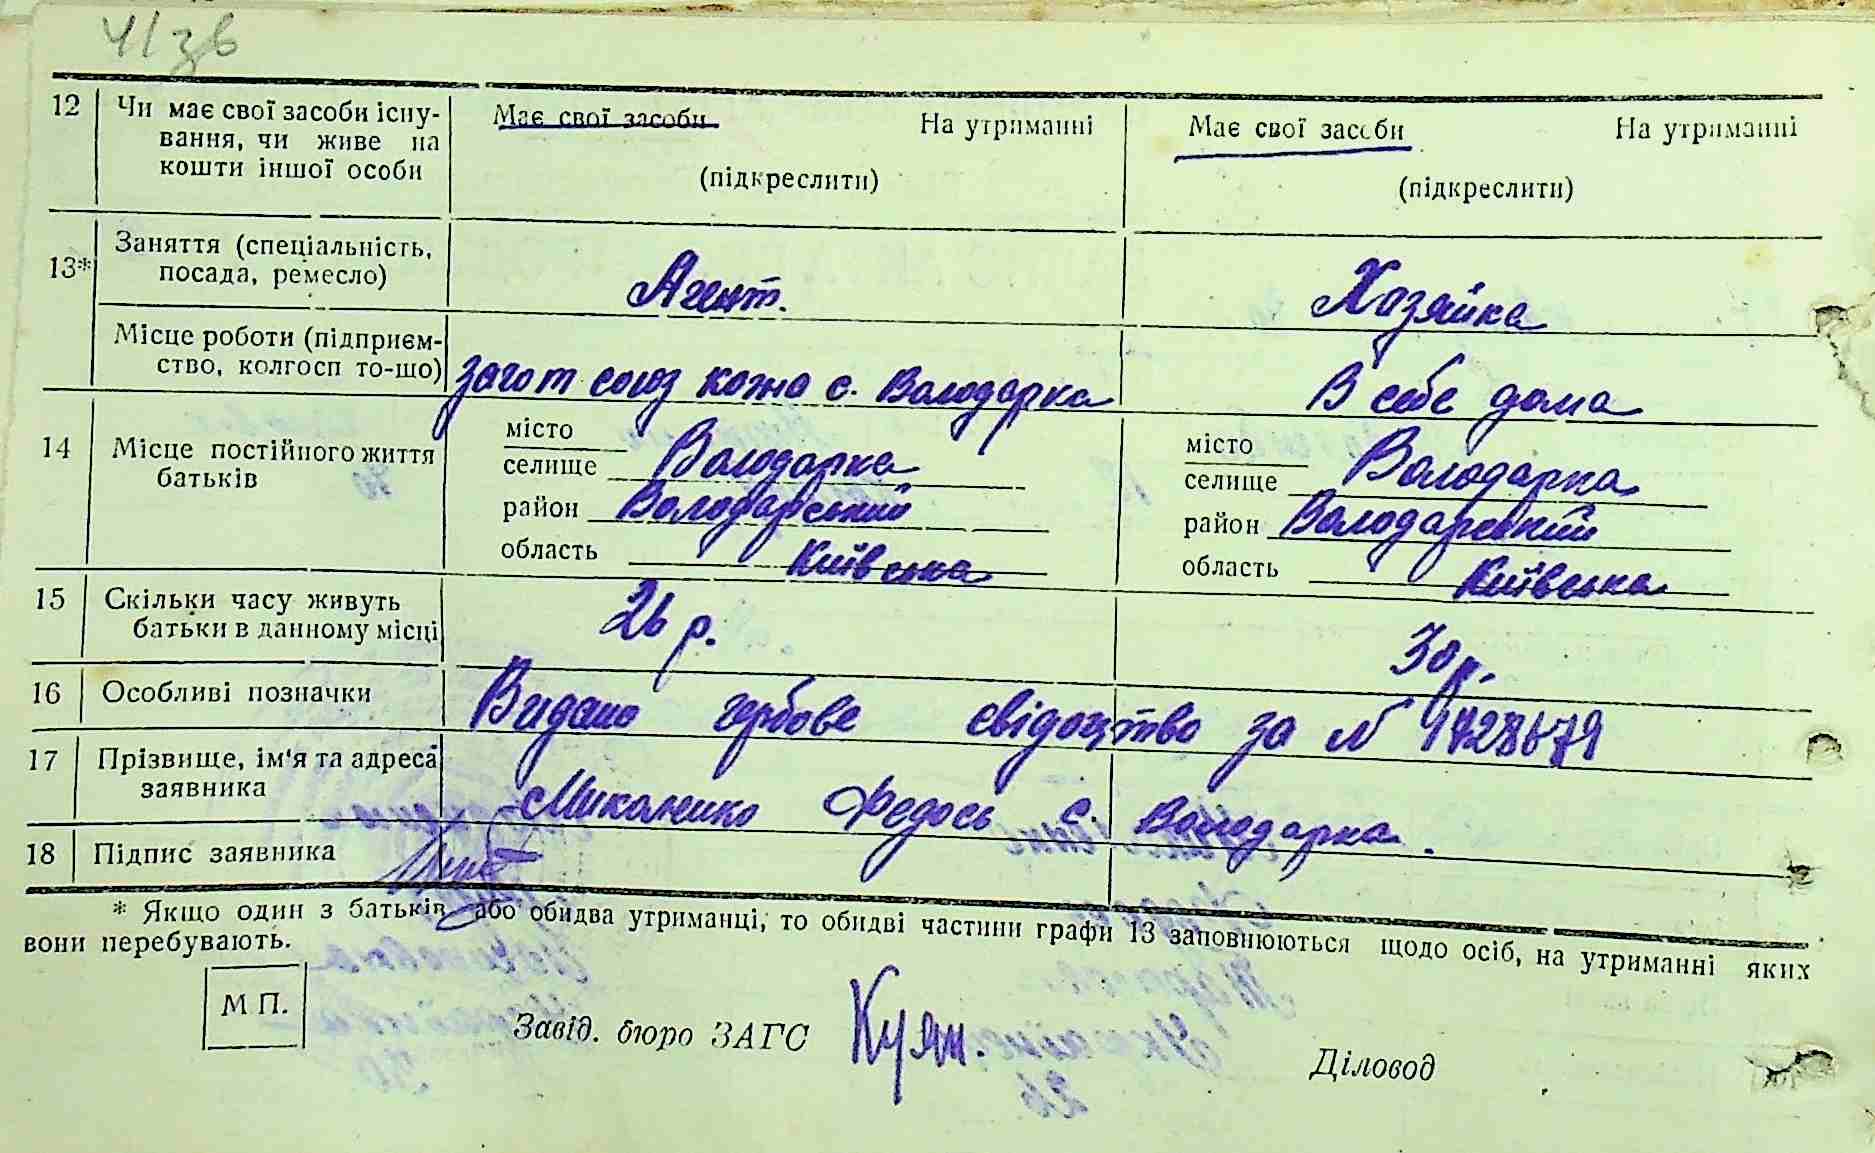 ч/зв
12 Чи має свої засоби існу- Має свої засоби На утриманні Має свої засоби На утриманні
вання, чи живе на
кошти іншої особи (підкреслити) (підкреслити)
13* Заняття (спеціальність,
посада, ремесло) Агент. Хозяйка
Місце роботи (підприєм-
ство, колгосп то-що) загот союз кожа с. Володарка В себе дома
14 Місце постійного життя місто місто
батьків селище Володарка селище Володарка
район Володарський район Володарський
область Київська область Київська
15 Скільки часу живуть
батьки в данному місці 26 р. 30 р.
16 Особливі позначки Видано гербове свідоцтво за N
17 Прізвище, ім'я та адреса
заявника Федось с. Володарка.
18 Підпис заявника
* Якщо один з батьків або обидва утриманці, то обидві частини графи 13 заповнюються щодо осіб, на утриманні яких
вони перебувають.
М П.
Завід. бюро ЗАГС Діловод